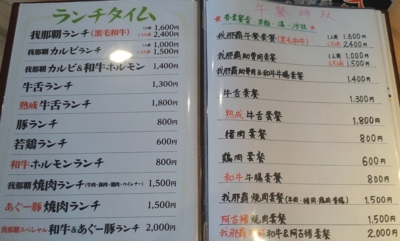 ランチタイム
我那覇ランチ(黒毛和牛) 1人前 1,600円
1.5人前 2,400円
我那覇 カルビランチ 1人前 1,000円
1.5人前 1,500円
我那覇 カルビ&和牛ホルモン 1,400円
牛舌ランチ 1,300円
熟成 牛舌ランチ 1,800円
豚ランチ 800円
若鶏ランチ 600円
和牛 ホルモンランチ 800円
我那覇 焼肉ランチ(牛肉・豚肉・鶏肉・ウインナー) 1,500円
あぐー豚ランチ 1,500円
我那覇スペシャル 和牛&あぐー豚ランチ 2,000円
午餐時段
我那覇牛套餐(黒毛和牛) 1人前 1,600円
1.5人前 2,400円
我那覇助骨肉套餐 1人前 1,000円
1.5人前 1,500円
我那覇助骨肉&和牛牛腸套餐 1,400円
牛舌套餐 1,300円
熟成 牛舌套餐 1,800円
猪肉套餐 800円
鶏肉套餐 600円
和牛 牛腸套餐 800円
我那覇 焼肉套餐 1,500円
阿古猪 焼肉套餐 1,500円
和牛&阿古猪套餐 2,000円